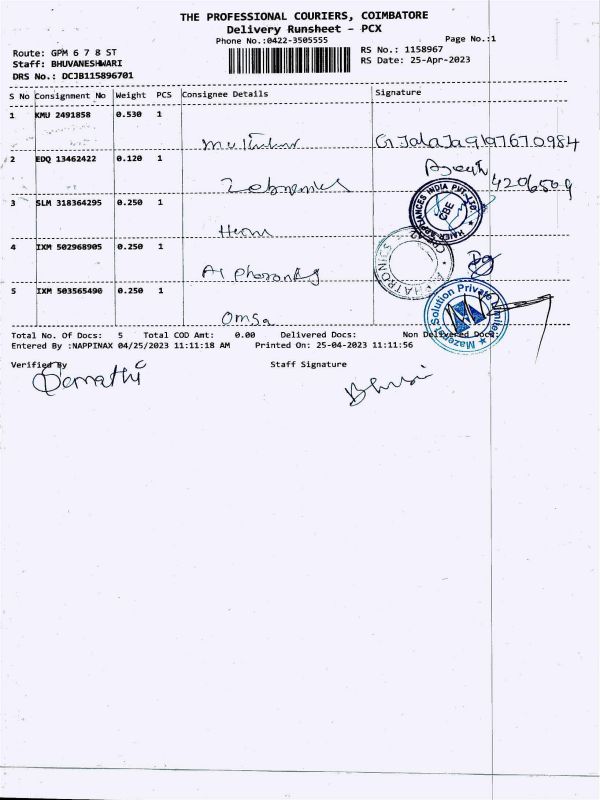 THE PROFESSIONAL COURIERS, COIMBATORE
Delivery Runsheet - PCX
Phone No.:0422-3505555 Page No.:1
Route: GPM 6 7 8 ST RS No.: 1158967
Staff: BHUVANESHWARI RS Date: 25-Apr-2023
DRS No.: DCJB115896701
S No Consignment No Weight PCS Consignee Details Signature
1 KMU 2491858 0.530 1
2 EDQ 13462422 0.120 1
3 SLM 318364295 0.250 1
HAIER APPLIANCES INDIA PVT. LTD. CBE
4 IXM 502968905 0.250 1
5 IXM 503565490 0.250 1
Omsa
Solution Private Limited
Total No. Of Docs: 5 Total COD Amt: 0.00 Delivered Docs: Non Delivered Docs:
Entered By :NAPPINAX 04/25/2023 11:11:18 AM Printed On: 25-04-2023 11:11:56
Verified By Staff Signature